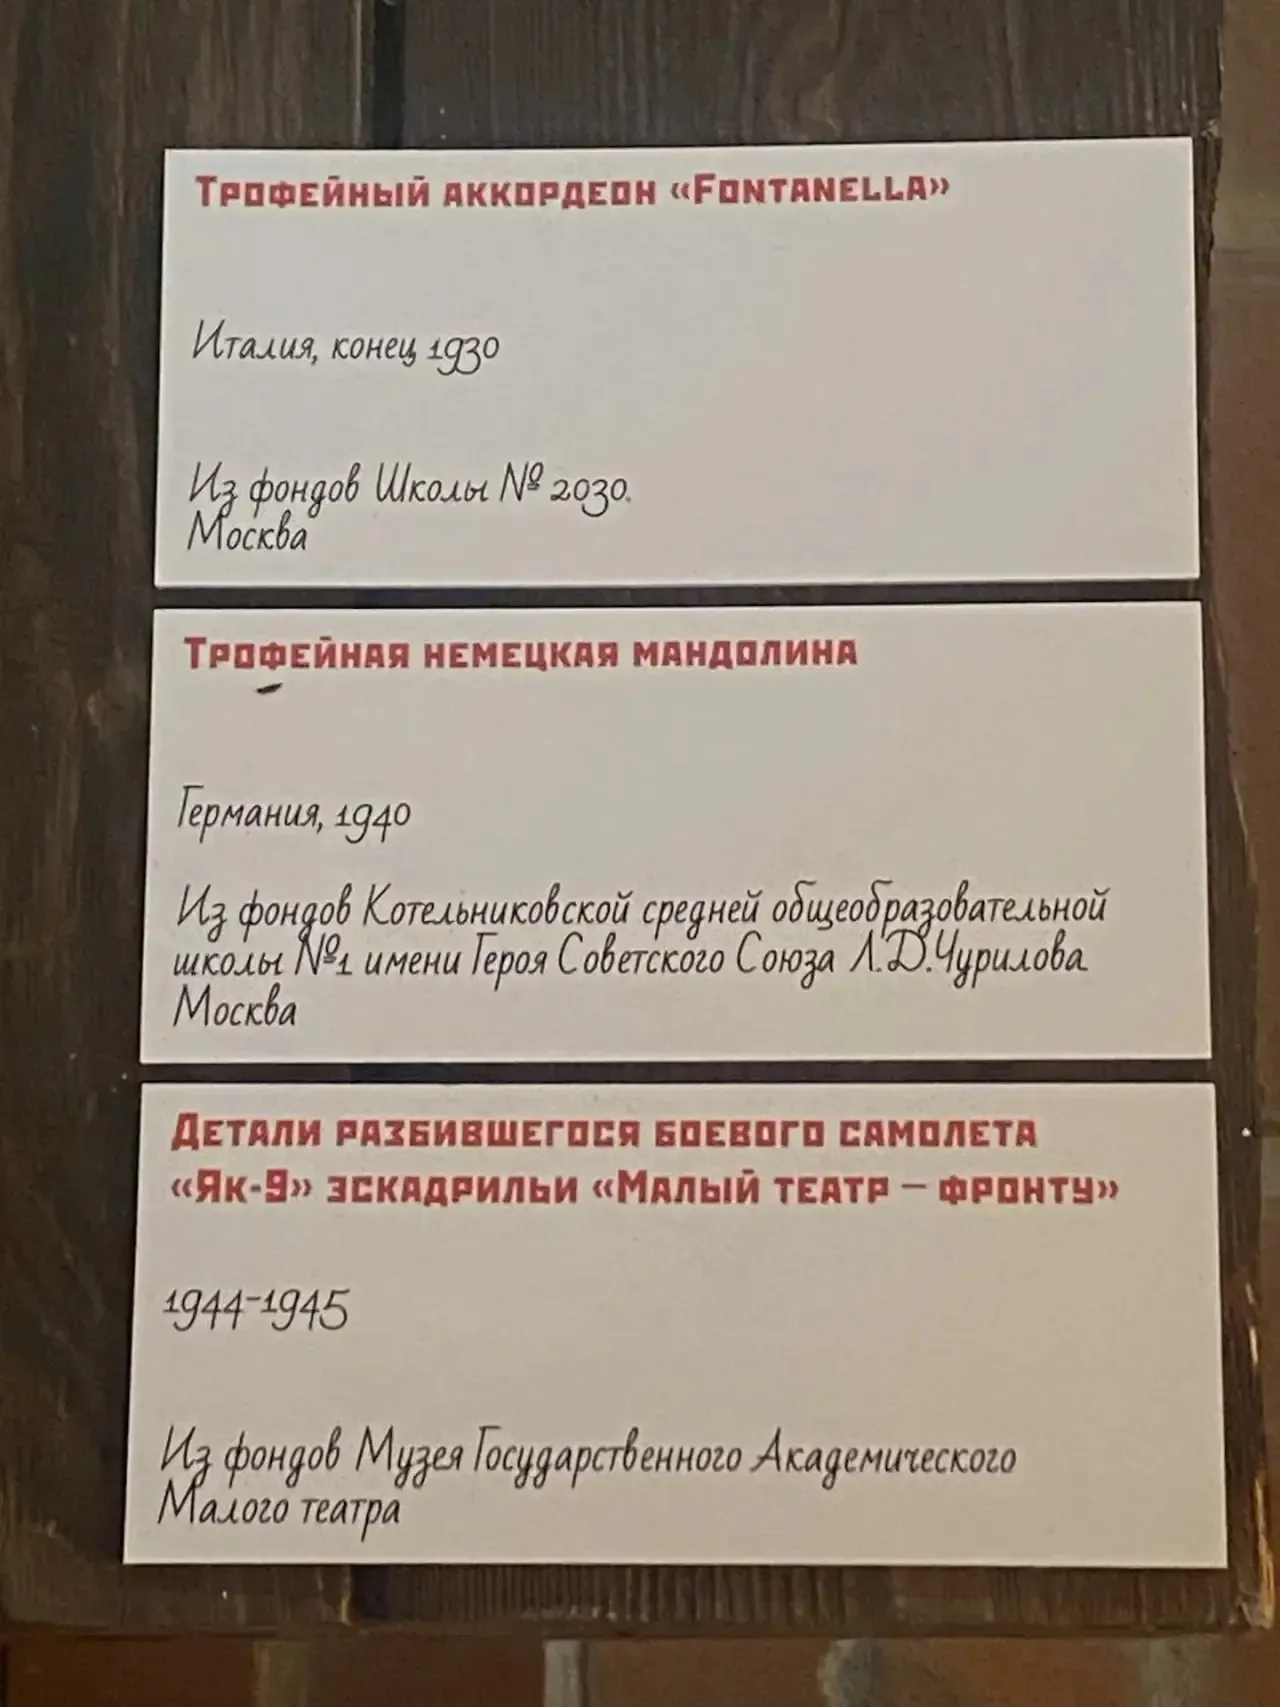 Трофейный аккордеон «Fontanella»
Италия, конец 1930
Из фондов Школы № 2030.
Москва
Трофейная немецкая мандолина
Германия, 1940
Из фондов Котельниковской средней общеобразовательной
школы №1 имени Героя Советского Союза Л.Д.Чурилова
Москва
Детали разбившегося боевого самолета
«Як-9» эскадрильи «Малый театр – фронту»
1944-1945
Из фондов Музея Государственного Академического
Малого театра